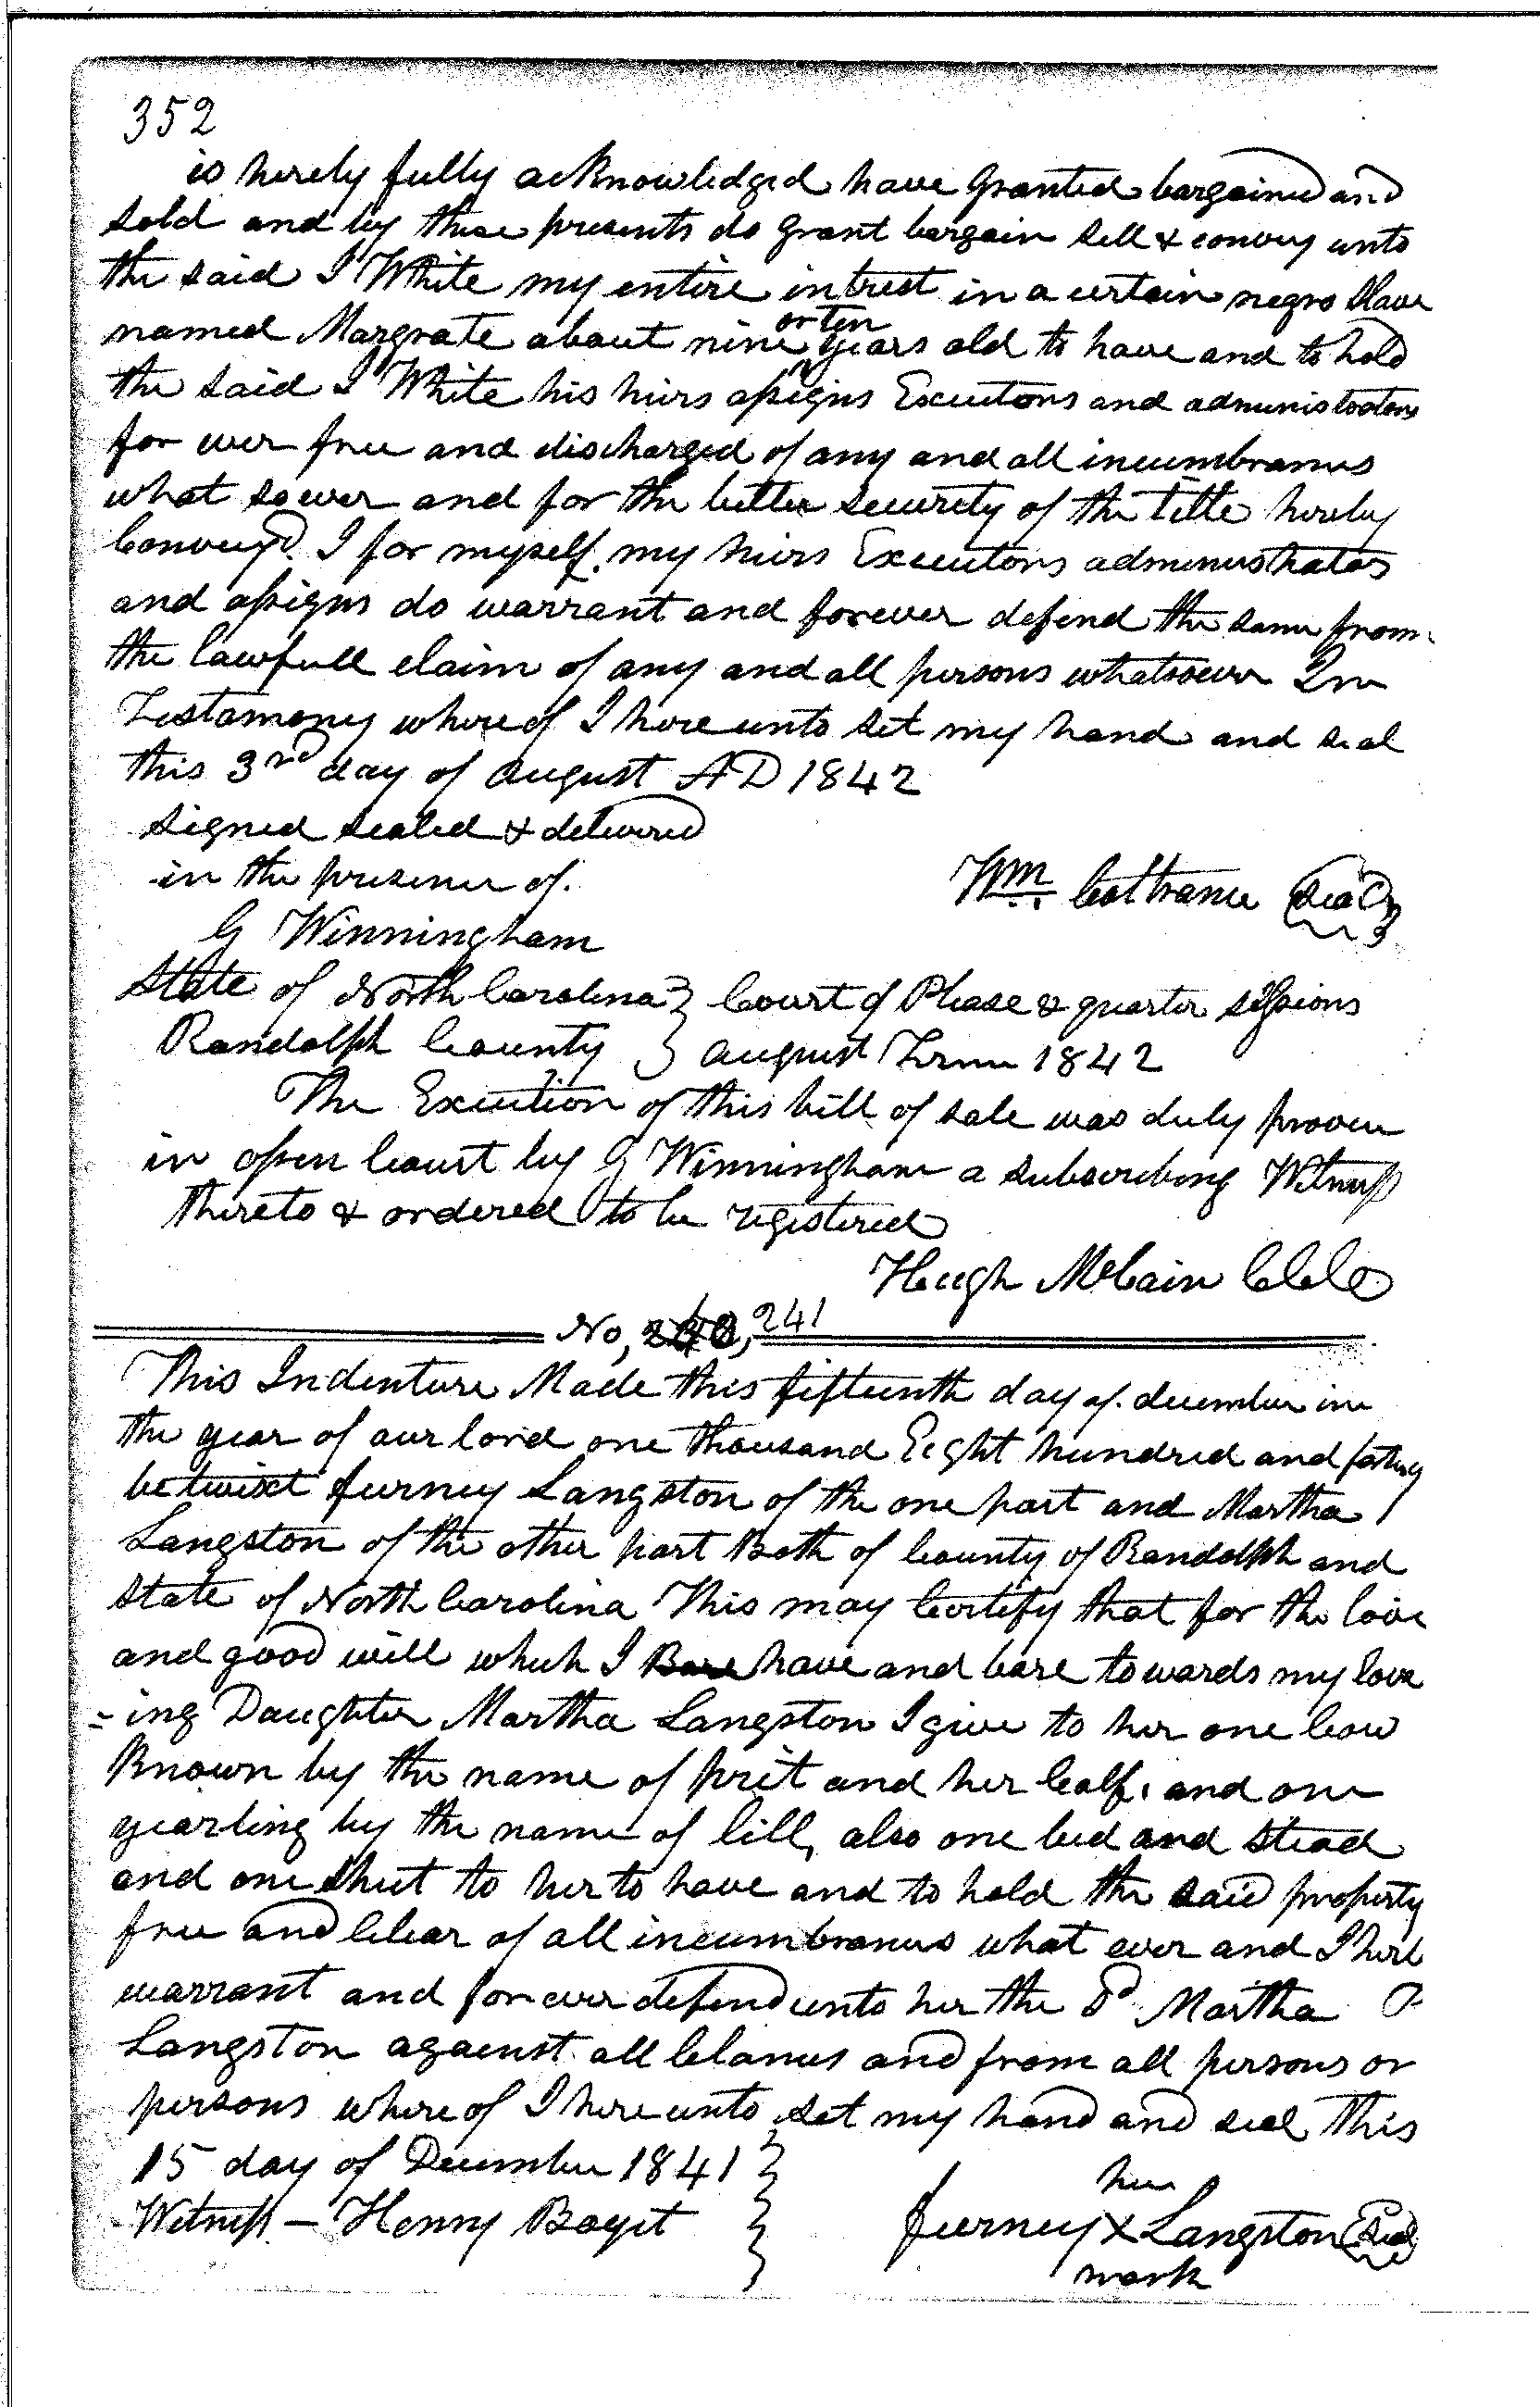 352
is herely fully acknowledged have granted bargained and
sold and by these presents do grant bargain sell & convey unto
the said I White my entire intrest in a certain negro slave
named Margrate about nine or ten years old to have and to hold
the said I White his heirs assigns Executors and administrators
for ever free and discharged of any and all incumbrances
what soever and for the better security of the title hereby
Conveyd. I for myself, my heirs Executors administrators
and assigns do warrant and forever defend the same from
the lawfull claim of any and all persons whatsoever In
Testamony where of I here unto set my hand and seal
this 3rd day of august AD 1842
signed sealed & delivered
in the presence of.
Wm. Coltrane Seal
G Winningham
State of North Carolina } Court of Please & quarter sessions
Randolph County } august Term 1842
The Execution of this bill of sale was duly proven
in open Court by G Winningham a subscribing Witness
thereto & ordered to be registered
Hugh McCain Clk
No, 240, 241
This Indenture Made this fifteenth day of. december in
the year of our lord one thousand Eight hundred and
betwixt furney Langston of the one part and Martha
Langston of the other part Both of County of Randolph and
State of North Carolina This may Certify that for the love
and good will which I Bare have and bare towards my love
=ing Daughter Martha Langston I give to her one Cow
Known by the name of prit and her Calf, and one
yearling by the name of lill, also one bed and stead
and one sheet to her to have and to hold the said property
free and Clear of all incumbrances what ever and I here
warrant and for ever defend unto her the sd. Martha
Langston against all Clames and from all persons or
persons where of I here unto set my hand and seal This
15 day of December 1841
Witness — Henry Bogit
her
furney X Langston Seal
mark